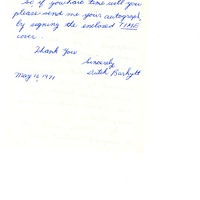 So if you have time will you
please send me your autograph,
by signing the enclosed TIME
cover.
Thank You
Sincerely
Butch Barhytt
May 12, 1971